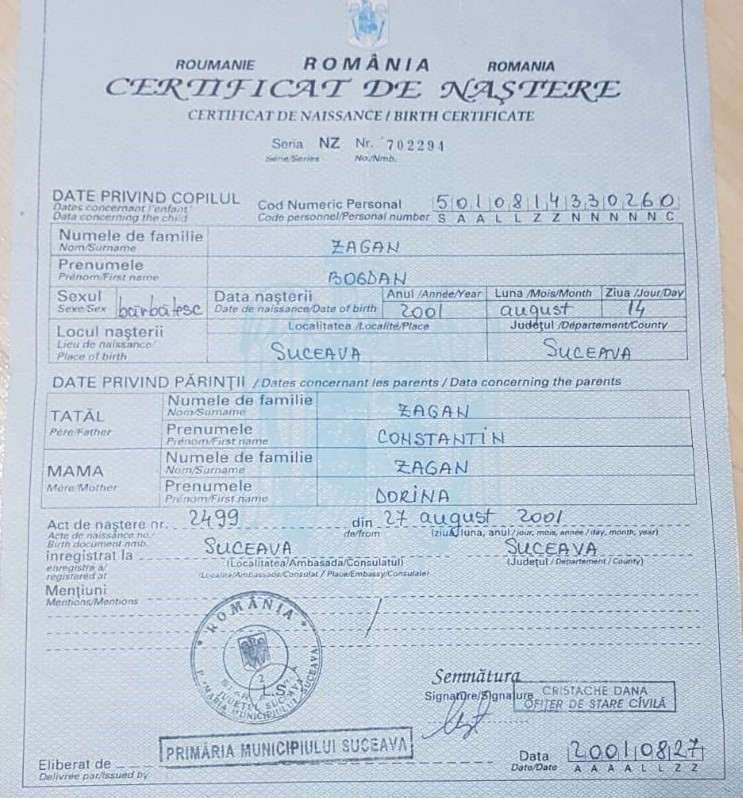 ROUMANIE ROMÂNIA ROMANIA
CERTIFICAT DE NAŞTERE
CERTIFICAT DE NAISSANCE / BIRTH CERTIFICATE
Seria NZ Nr. 702294
Série/Series No/Nmb.
DATE PRIVIND COPILUL
Dates concernant l'enfant/
Data concerning the child
Cod Numeric Personal 5010814330260
Code personnel/Personal number S A A L L Z Z N N N N N C
Numele de familie ZAGAN
Nom/Surname
Prenumele BOGDAN
Prénom/First name
Sexul bărbătesc
Sexe/Sex
Data naşterii
Date de naissance/Date of birth
Anul /Année/Year Luna /Mois/Month Ziua /Jour/Day
2001 august 14
Locul naşterii
Lieu de naissance/
Place of birth
Localitatea /Localité/Place Judeţul /Département/County
SUCEAVA SUCEAVA
DATE PRIVIND PĂRINŢII / Dates concernant les parents / Data concerning the parents
TATĂL
Père/Father
Numele de familie ZAGAN
Nom/Surname
Prenumele CONSTANTIN
Prénom/First name
MAMA
Mère/Mother
Numele de familie ZAGAN
Nom/Surname
Prenumele DORINA
Prénom/First name
Act de naştere nr. 2499 din 27 august 2001
Acte de naissance no./
Birth document nmb.
de/from (ziua, luna, anul / jour, mois, année / day, month, year)
înregistrat la SUCEAVA SUCEAVA
enregistré à/
registered at
(Localitatea/Ambasada/Consulatul) (Judeţul / Département / County)
(Localité/Ambassade/Consulat / Place/Embassy/Consulate)
Menţiuni
Mentions/Mentions
ROMÂNIA
JUDEŢUL SUCEAVA
PRIMĂRIA MUNICIPIULUI SUCEAVA
2
L.S.
Semnătura
Signature/Signature
CRISTACHE DANA
OFIŢER DE STARE CIVILĂ
Eliberat de PRIMĂRIA MUNICIPIULUI SUCEAVA
Délivrée par/Issued by
Data 20010827
Date/Date A A A A L L Z Z